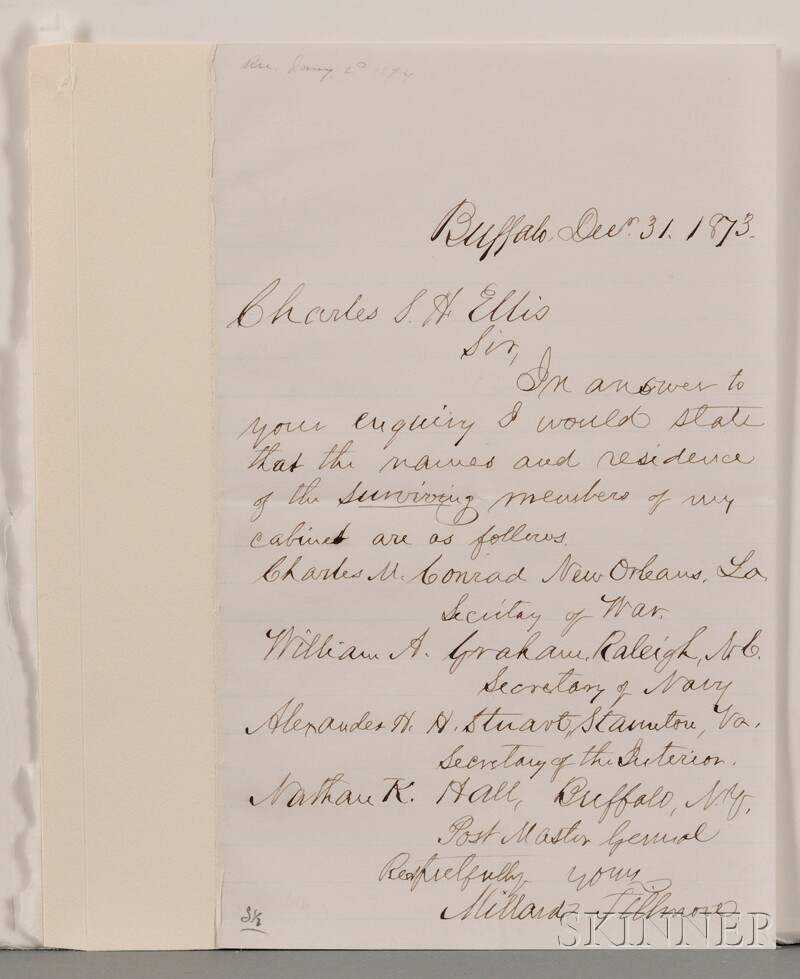 Buffalo. Decr. 31. 1873.
Charles S. H. Ellis
Sir,
In answer to
your enquiry I would state
that the names and residence
of the surviving members of my
cabinet are as follows.
Charles M. Conrad New Orleans, La.
Secritay of War.
William A. Graham, Raleigh, N.C.
Secretary of Navy
Alexander H. H. Stuart, Staunton, Va.
Secretary of the Interior.
Nathan K. Hall, Buffalo, N.Y.
Post Master Genral
Respectfully yours
Millard Fillmore
SKINNER